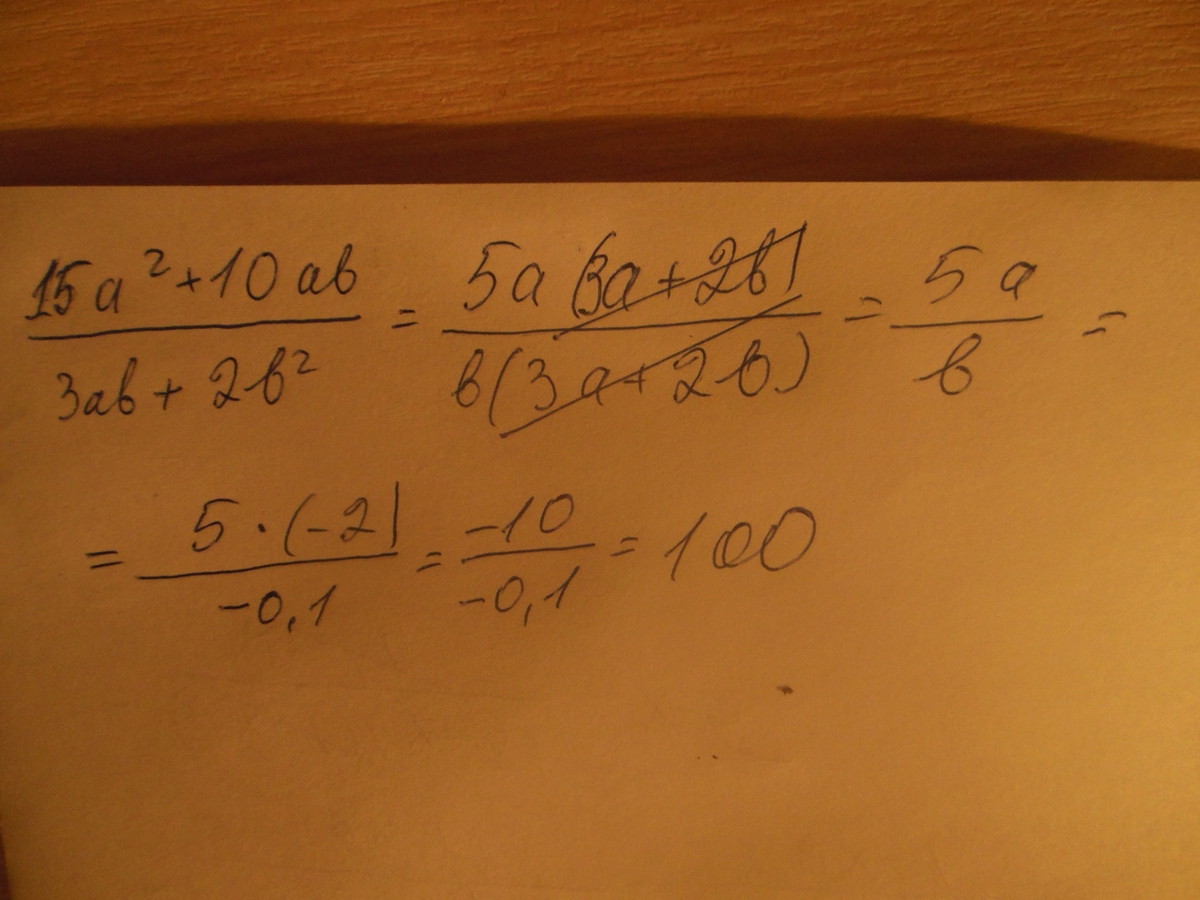 15a²+10ab / 3ab+2b² = 5a(3a+2b) / b(3a+2b) = 5a / b =
= 5·(-2) / -0,1 = -10 / -0,1 = 100